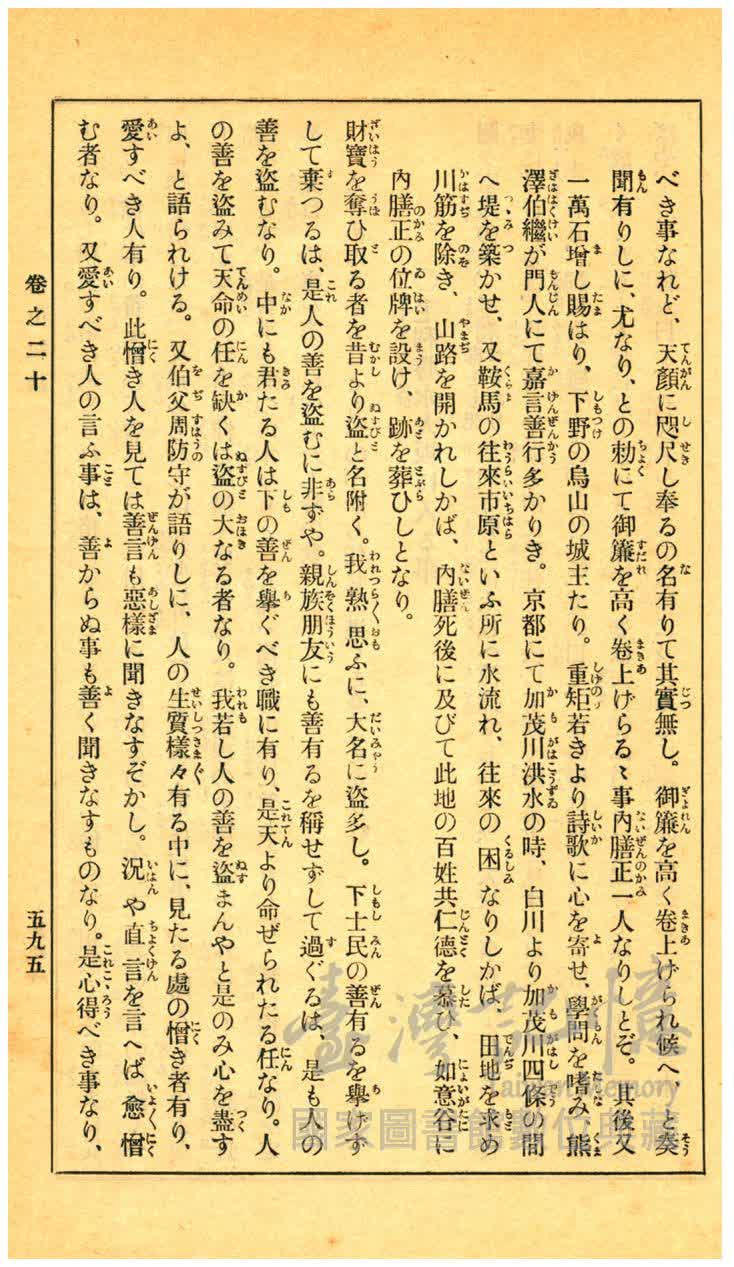 べき事なれど、天顏に咫尺し奉るの名有りて其實無し。御簾を高く卷上げられ候へ、と奏
聞有りしに、尤なり、との勅にて御簾を高く卷上げらるゝ事內膳正一人なりしとぞ。其後又
一萬石增し賜はり、下野の烏山の城主たり。重矩若きより詩歌に心を寄せ、學問を嗜み熊
澤伯繼が門人にて嘉言善行多かりき。京都にて加茂川洪水の時、白川より加茂川四條の間
へ堤を築かせ、又鞍馬の往來市原といふ所に水流れ、往來の困なりしかば、田地を求め
川筋を除き、山路を開かれしかば、內膳死後に及びて此地の百姓共仁德を慕ひ、如意谷に
內膳正の位牌を設け、跡を葬ひしとなり。
財寶を奪ひ取る者を昔より盜と名附く。我熟思ふに、大名に盜多し。下士民の善有るを擧げず
して棄つるは、是人の善を盜むに非ずや。親族朋友にも善有るを稱せずして過ぐるは、是も人の
善を盜むなり。中にも君たる人は下の善を擧ぐべき職に有り、是天より命ぜられたる任なり。人
の善を盜みて天命の任を缺くは盜の大なる者なり。我若し人の善を盜まんやと是のみ心を盡す
よ、と語られける。又伯父周防守が語りしに、人の生質樣々有る中に、見たる處の憎き者有り、
愛すべき人有り。此憎き人を見ては善言も惡樣に聞きなすぞかし。況や直言を言へば愈憎
む者なり。又愛すべき人の言ふ事は、善からぬ事も善く聞きなすものなり。是心得べき事なり、
卷之二十
五九五
臺灣記憶
Taiwan Memory
國家圖書館數位典藏